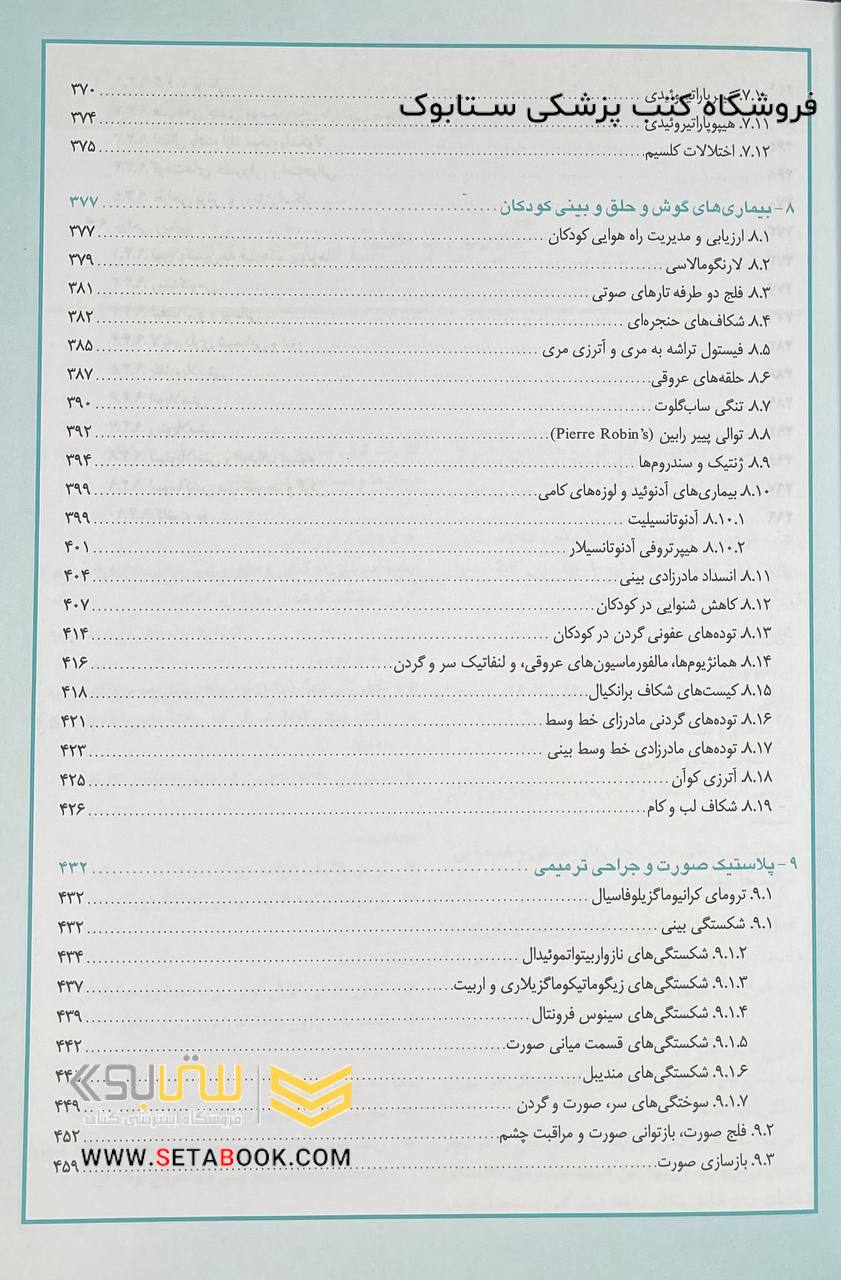 فروشگاه کتب پزشکی ستابوک
۷.۱۰. هیپرپاراتیروئیدی ۳۷۰
۷.۱۱. هیپوپاراتیروئیدی ۳۷۴
۷.۱۲. اختلالات کلسیم ۳۷۵
۸- بیماری‌های گوش و حلق و بینی کودکان ۳۷۷
۸.۱. ارزیابی و مدیریت راه هوایی کودکان ۳۷۷
۸.۲. لارنگومالاسی ۳۷۹
۸.۳. فلج دو طرفه تارهای صوتی ۳۸۱
۸.۴. شکاف‌های حنجره‌ای ۳۸۲
۸.۵. فیستول تراشه به مری و آترزی مری ۳۸۵
۸.۶. حلقه‌های عروقی ۳۸۷
۸.۷. تنگی ساب‌گلوت ۳۹۰
۸.۸. توالی پییر رابین (Pierre Robin's) ۳۹۲
۸.۹. ژنتیک و سندروم‌ها ۳۹۴
۸.۱۰. بیماری‌های آدنوئید و لوزه‌های کامی ۳۹۹
۸.۱۰.۱. آدنوتانسیلیت ۳۹۹
۸.۱۰.۲. هیپرتروفی آدنوتانسیلار ۴۰۱
۸.۱۱. انسداد مادرزادی بینی ۴۰۴
۸.۱۲. کاهش شنوایی در کودکان ۴۰۷
۸.۱۳. توده‌های عفونی گردن در کودکان ۴۱۴
۸.۱۴. همانژیوم‌ها، مالفورماسیون‌های عروقی، و لنفاتیک سر و گردن ۴۱۶
۸.۱۵. کیست‌های شکاف برانکیال ۴۱۸
۸.۱۶. توده‌های گردنی مادرزای خط وسط ۴۲۱
۸.۱۷. توده‌های مادرزادی خط وسط بینی ۴۲۳
۸.۱۸. آترزی کوآن ۴۲۵
۸.۱۹. شکاف لب و کام ۴۲۶
۹- پلاستیک صورت و جراحی ترمیمی ۴۳۲
۹.۱. ترومای کرانیوماگزیلوفاسیال ۴۳۲
۹.۱. شکستگی بینی ۴۳۲
۹.۱.۲. شکستگی‌های نازواربیتواتموئیدال ۴۳۴
۹.۱.۳. شکستگی‌های زیگوماتیکوماگزیلاری و اربیت ۴۳۷
۹.۱.۴. شکستگی‌های سینوس فرونتال ۴۳۹
۹.۱.۵. شکستگی‌های قسمت میانی صورت ۴۴۲
۹.۱.۶. شکستگی‌های مندیبل
۹.۱.۷. سوختگی‌های سر، صورت و گردن ۴۴۹
۹.۲. فلج صورت، بازتوانی صورت و مراقبت چشم ۴۵۲
۹.۳. بازسازی صورت ۴۵۹
ستابوک
فروشگاه اینترنتی کتاب
WWW.SETABOOK.COM